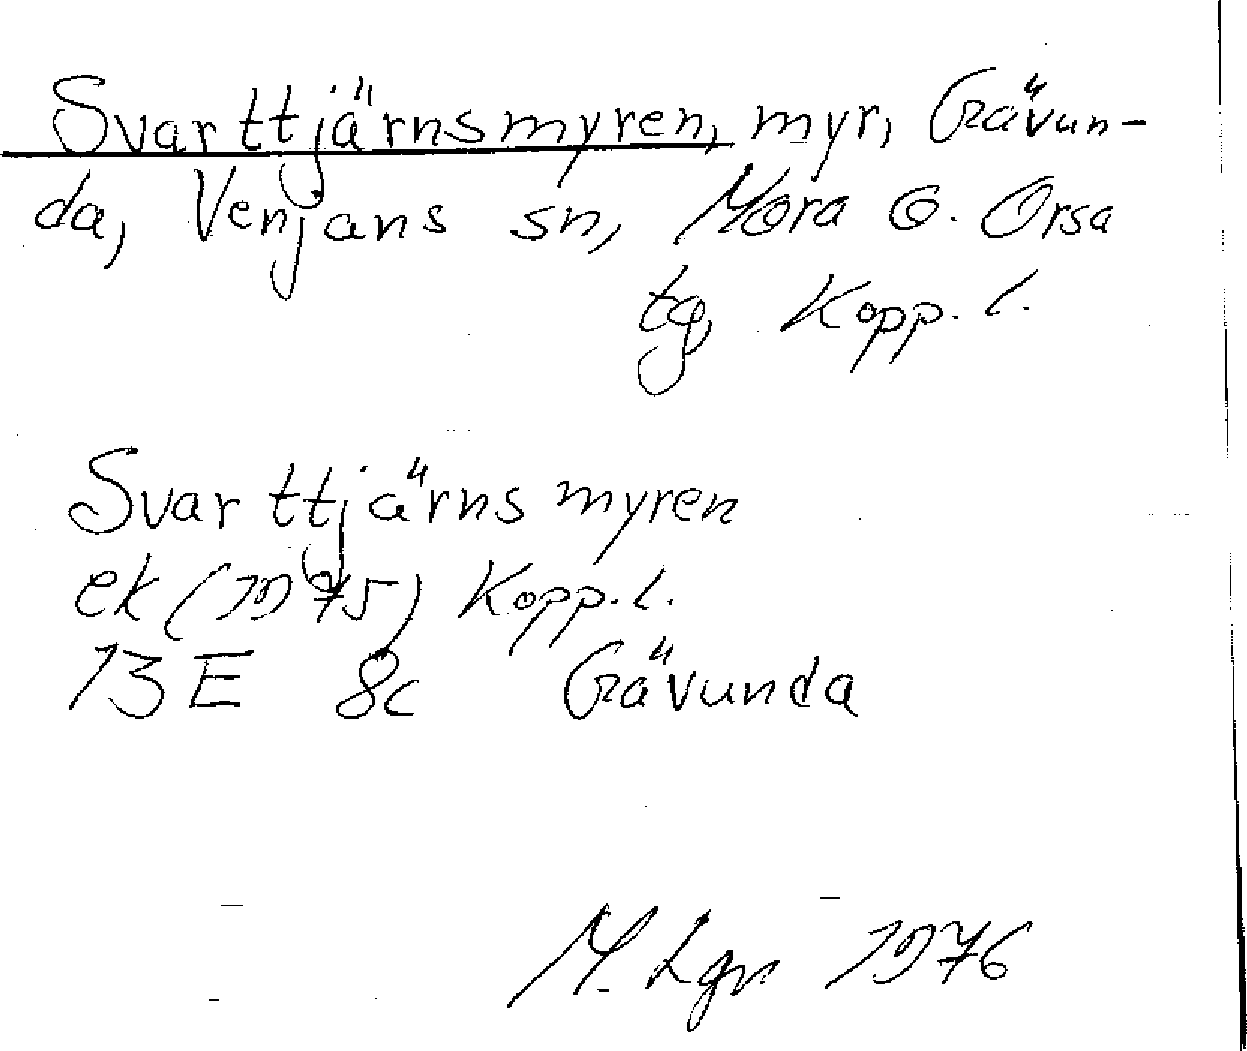 Svarttjärnsmyren, myr, Grävun-
da, Venjans sn, Mora o. Orsa
tg, Kopp. l.
Svarttjärnsmyren
ek (1975) Kopp. l.
13 E 8c Grävunda
M. Lgn 1976